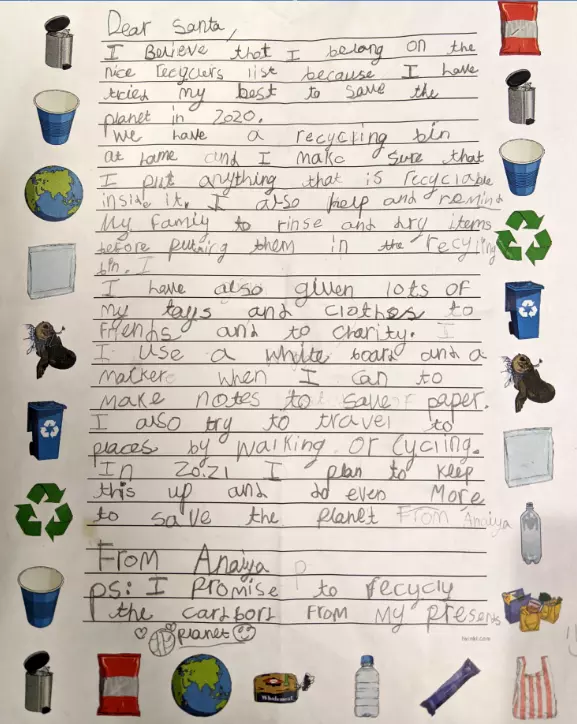 Dear Santa,
I Believe that I belong on the
nice recyclers list because I have
tried my best to save the
planet in 2020.
We have a recycling bin
at home and I make sure that
I put anything that is recyclable
inside it. I also help and remind
My Family to rinse and dry items
before putting them in the recyling
bin. I
I have also given lots of
my toys and clothes to
friends and to charity. I
I use a white board and a
marker when I can to
make notes to save paper.
I also try to travel to
places by walking or Cycling.
In 2021 I plan to keep
this up and do even More
to save the planet From Anaiya
From Anaiya P
ps: I promise to recycly
the carbort From My presents
planet
twinkl.com
Wholemeal